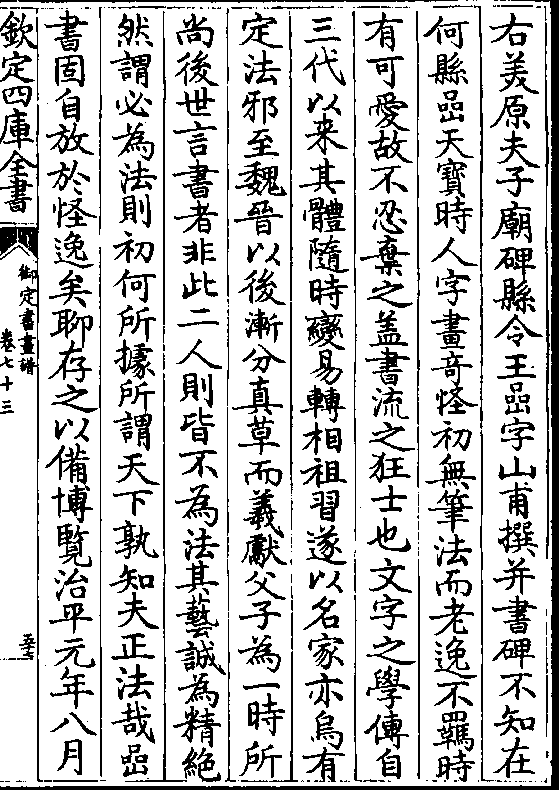 右美原夫子廟碑縣令王嵒字山甫撰并書碑不知在
何縣嵒天寶時人字畫奇怪初無筆法而老逸不羈時
有可愛故不忍棄之盖書流之狂士也文字之學傳自
三代以来其體隨時變易轉相祖習遂以名家亦烏有
定法邪至魏晉以後漸分真草而羲獻父子為一時所
尚後世言書者非此二人則皆不為法其藝誠為精絶
然謂必為法則初何所據所謂天下孰知夫正法哉嵒
書固自放於怪逸矣聊存之以備博覽治平元年八月
欽定四庫全書
御定書畫譜
卷七十三